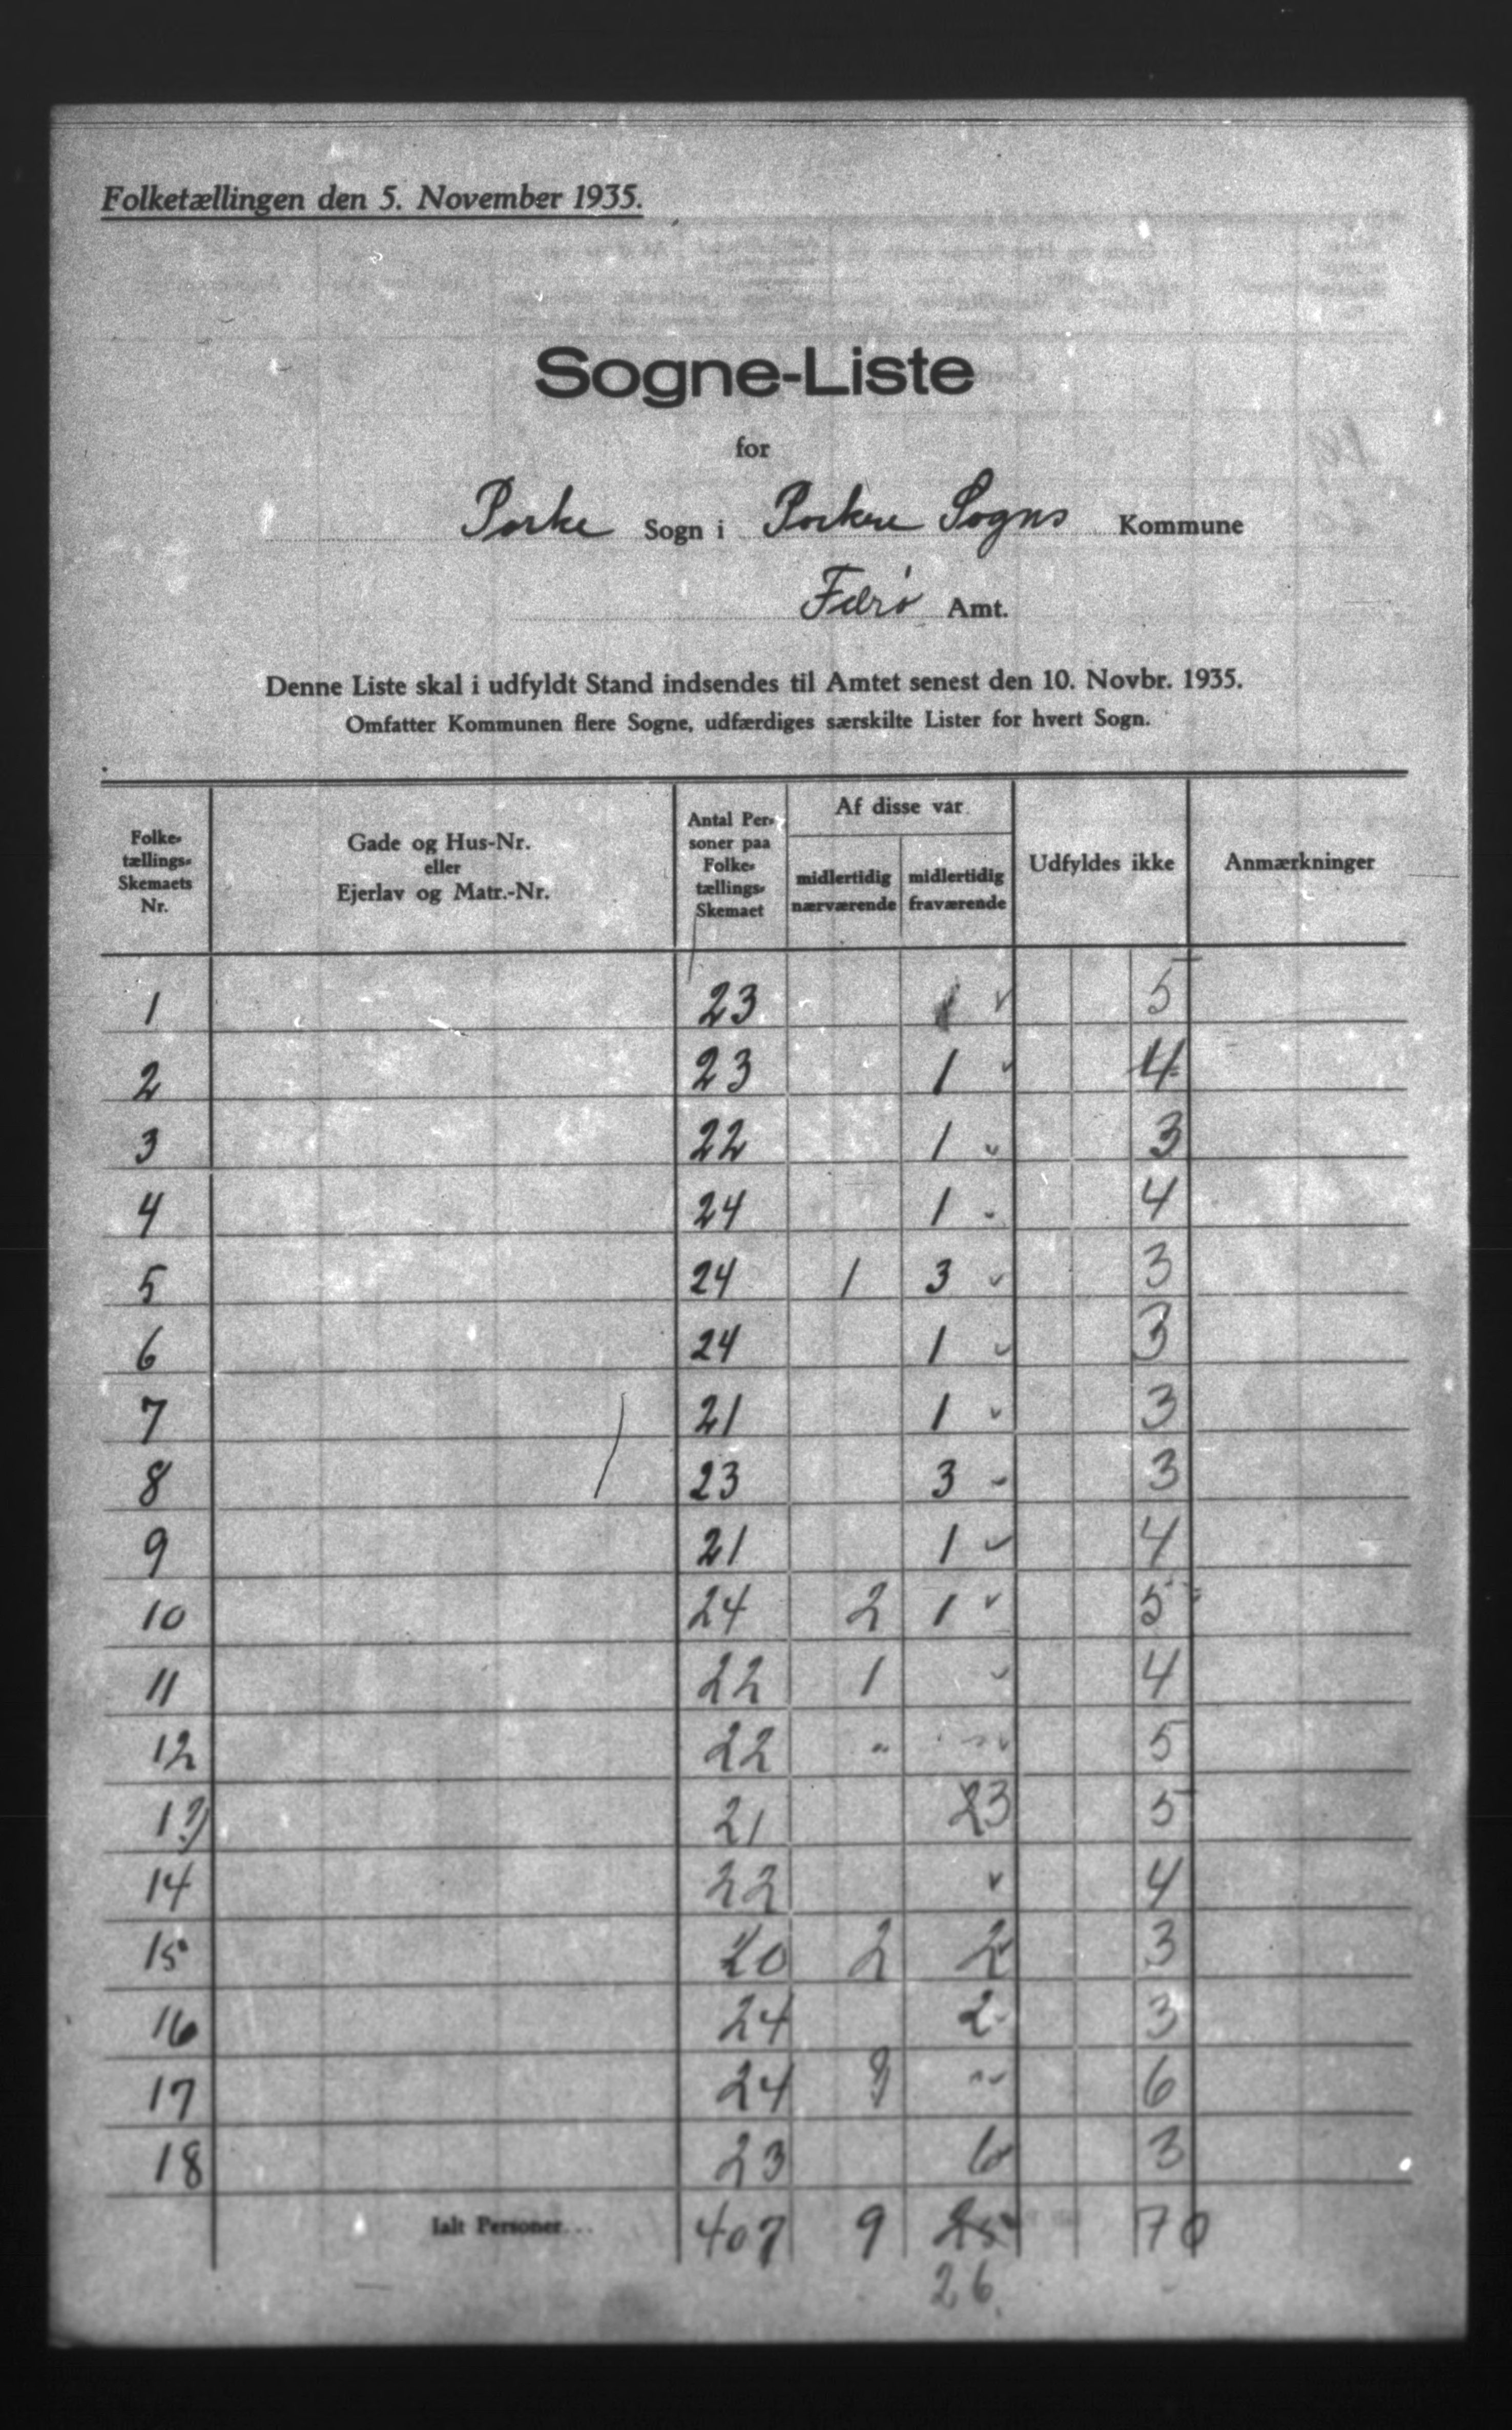 Folketællingen den 5. November 1935.
Sogne-Liste
for
Porke Sogn i Porkere Sogns Kommune
Færö Amt.
Denne Liste skal i udfyldt Stand indsendes til Amtet senest den 10. Novbr. 1935.
Omfatter Kommunen flere Sogne, udfærdiges særskilte Lister for hvert Sogn.
Folke-tællings-Skemaets Nr. Gade og Hus-Nr. eller Ejerlav og Matr.-Nr. Antal Per-soner paa Folke-tællings-Skemaet Af disse var midlertidig nærværende midlertidig fraværende Udfyldes ikke Anmærkninger
1 23 5
2 23 1 4
3 22 1 3
4 24 1 4
5 24 1 3 3
6 24 1 3
7 21 1 3
8 23 3 3
9 21 1 4
10 24 2 1 5
11 22 1 4
12 22 " " 5
13 21 5
14 22 4
15 20 2 2 3
16 24 2 3
17 24 " 6
18 23 6 3
Ialt Personer... 407 9 25 70
26